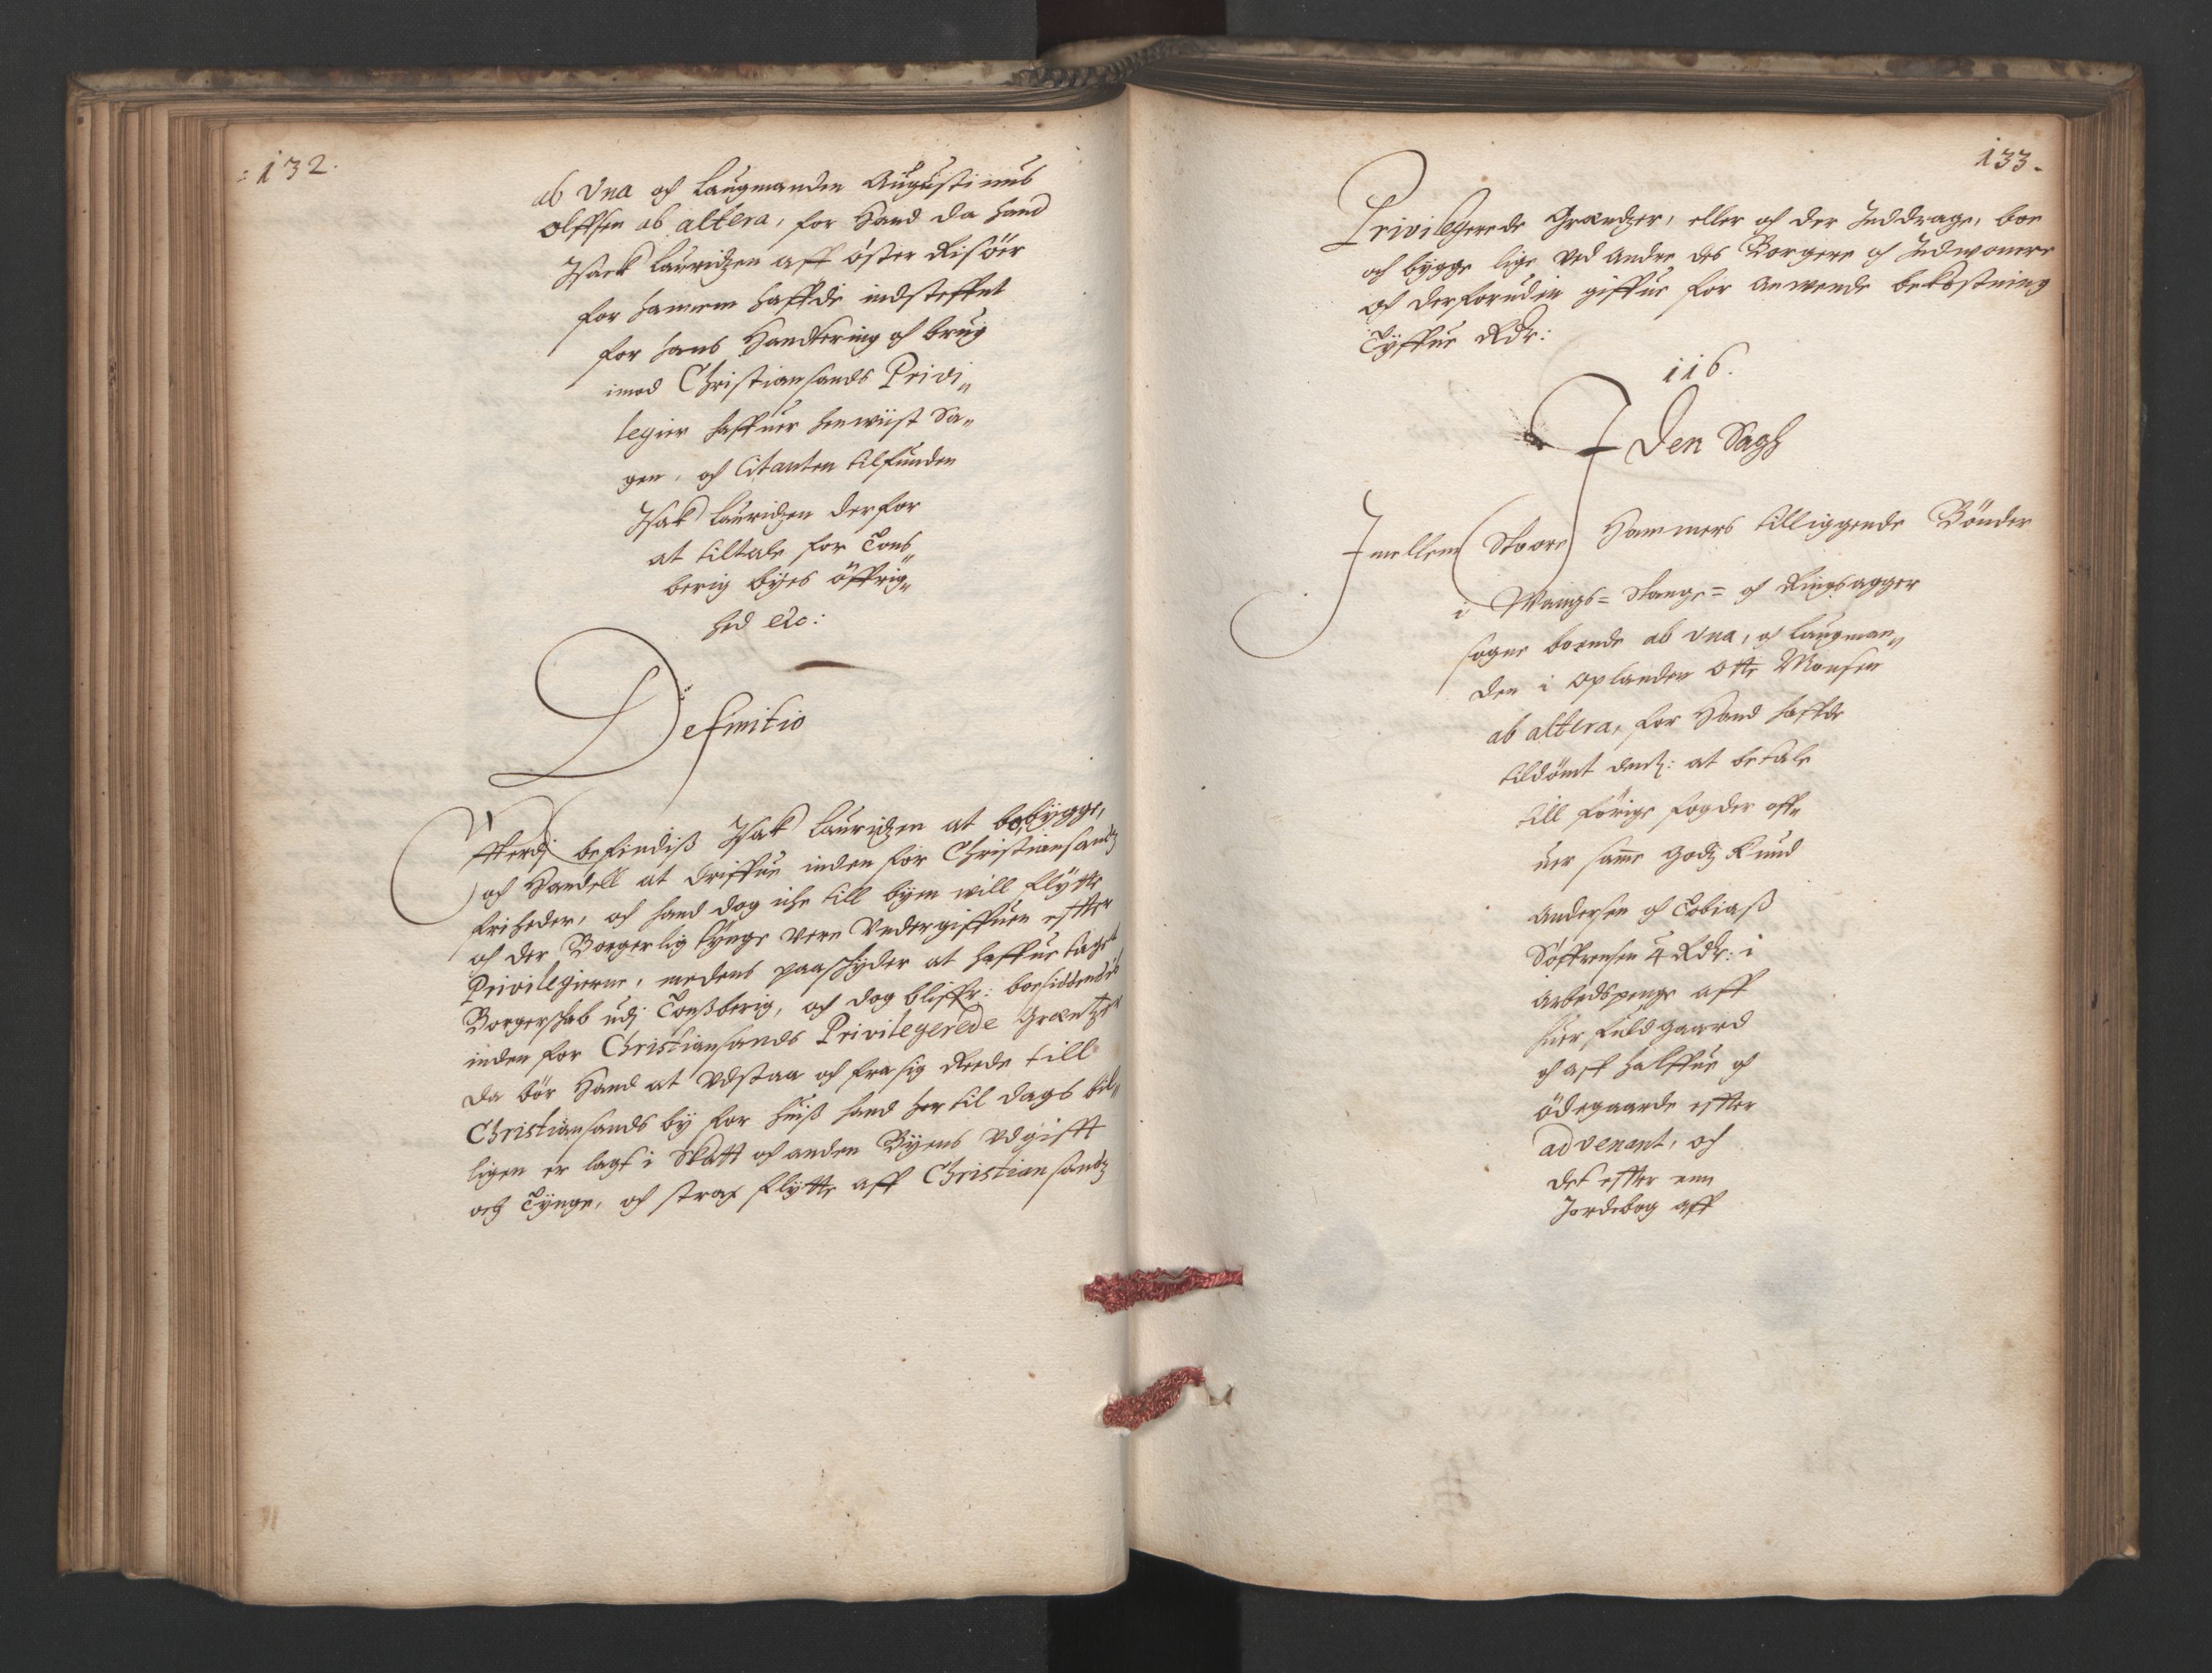 132.
ab Una och Laugmanden Augustinus
Olffsen ab altera, for Hand da hand
Isack Lauridzen aff öster Risöer
for hannem haffde indsteffnet
for hans Handtering och brug
imod Christiansands Privi„
legier haffuer henviist Sa„
gen, och Citanten tilfunden
Isak Lauridzen derfor
at tiltale for Tons„
berig byes öffrig„
hed etc:
Definitio
Efterdj befindis Isak Lauridzen at bebygge,
och Handell at driffue inden for Christiansandz
friheder, och hand dog iche till byen will flytte
och der Borgerlig tynge vere Undergiffuen efter
Privilegierne, medens paaskyder at haffue taget
Borgerskab udj Tonsberig, och dog bliffr: boesiddendes
inden for Christiansands Privilegerede Græntzer
da bör Hand at Udstaa och fra sig Rede till
Christiansands by for huis hand her til dags bil„
ligen er lagt i Skatt och anden Byens Udgifft
och Tynge, och strax flytte aff Christiansandz
133.
Privilegerede Grændzer, eller och der Inddrage, boe
och bygge lige ved andre des Borgere och Indwonere
och derforuden giffue for anwende bekostning
Tyffue Rdr:
116.
I Den Sagh
Imellem Stoore Hammers tilliggende Bönder
i Wangs= Stange= och Ringsagger
sogne boende ab Una, och Laugman„
den i Oplanden Otte Monsen
ab altera, for Hand haffde
tildömt dem: at betale
till förige fogder off„
uer samme godz Knud
Andersen och Tobias
Söffrensen 4 Rdr: i
Arbedspenge aff
huer fuld gaard
och aff halffue och
ödegaarde efter
advenant, och
det efter enn
Jordebog aff